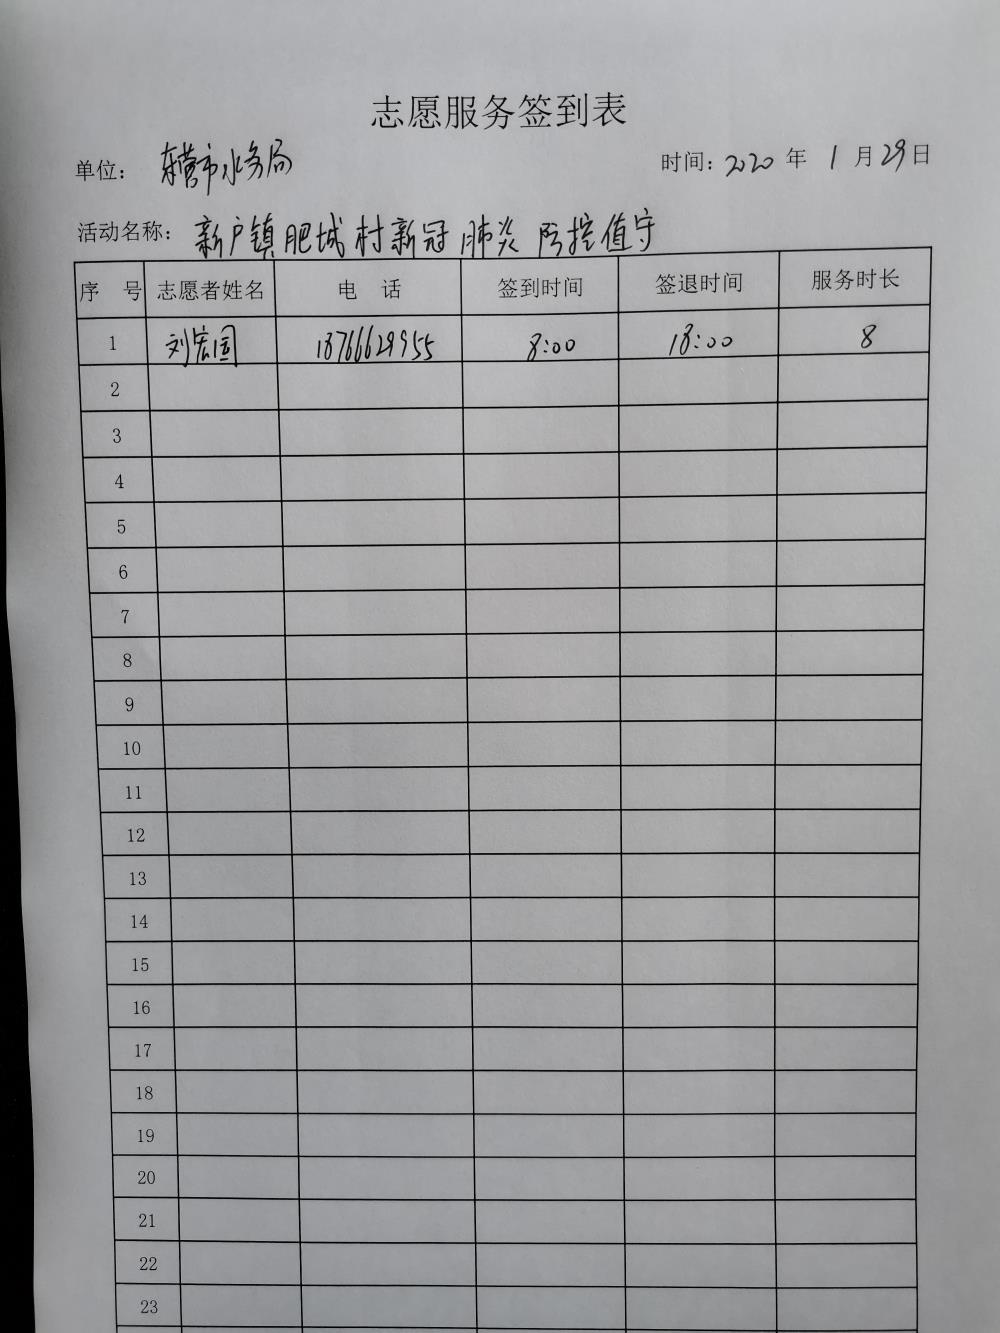 志愿服务签到表
单位： 东营市水务局 时间：2020 年 1 月 29 日
活动名称： 新户镇肥城村新冠肺炎防控值守
序 号 志愿者姓名 电 话 签到时间 签退时间 服务时长
1 刘宏国 18766629955 8:00 18:00 8
2
3
4
5
6
7
8
9
10
11
12
13
14
15
16
17
18
19
20
21
22
23